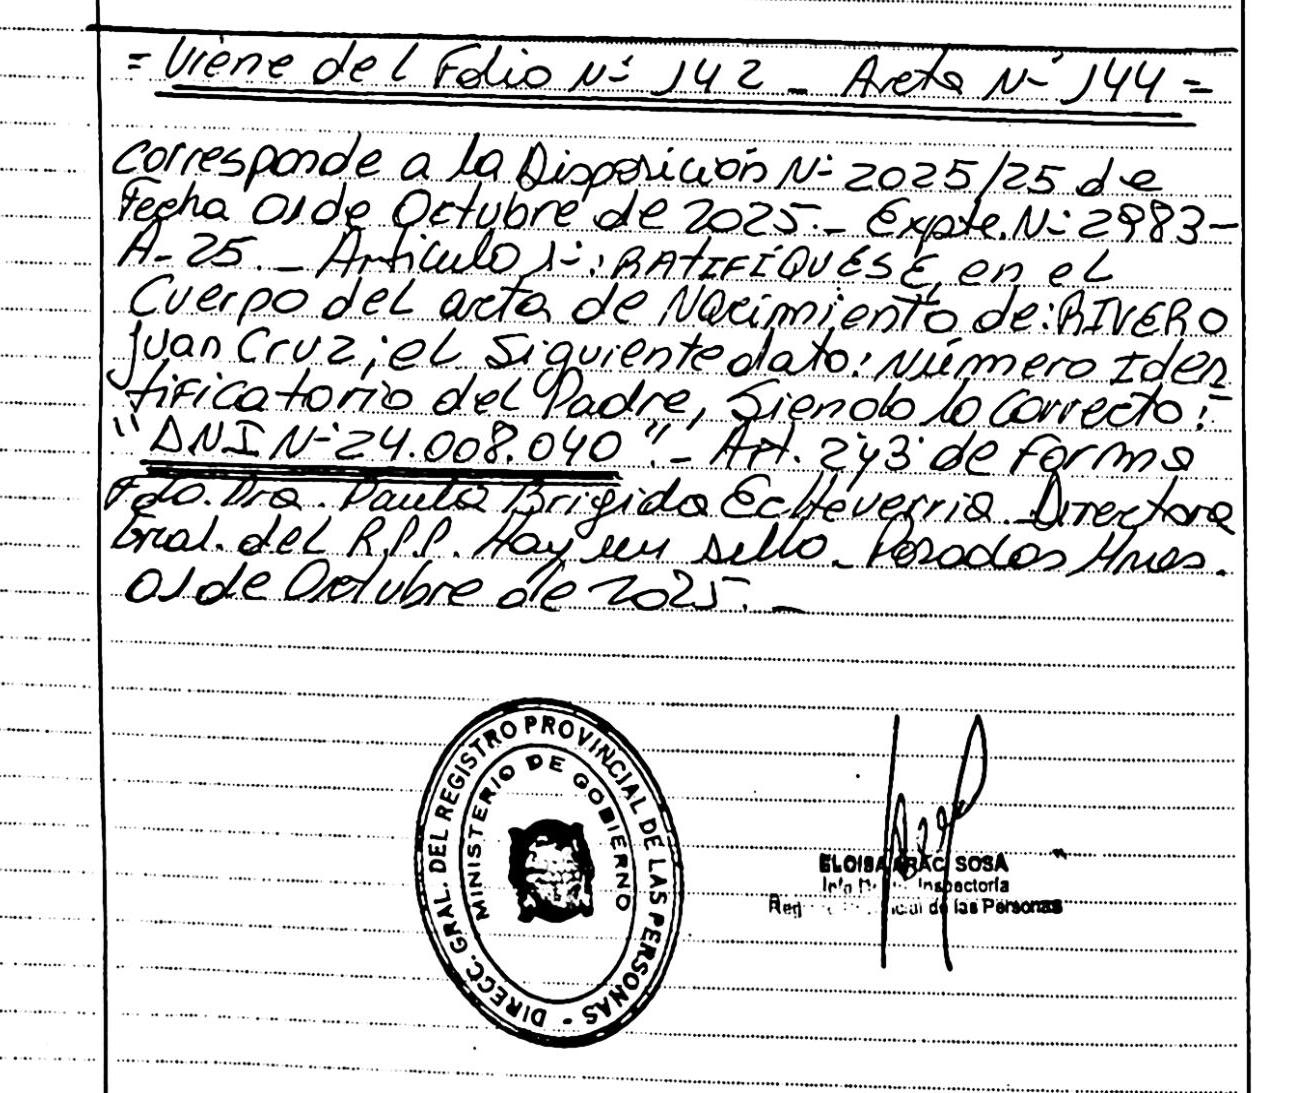 = Viene del Folio Nº 142 _ Acta Nº 144 =
corresponde a la Disposición Nº 2025/25 de
Fecha 01 de Octubre de 2025._ Expte. Nº 2983-
A-25._ Artículo 1º: RATIFÍQUESE, en el
Cuerpo del acta de Nacimiento de: RIVERO
Juan Cruz; el Siguiente dato: Número Iden
tificatorio del Padre, Siendo lo Correcto:
"DNI Nº 24.008.040"._ Art. 2y3 de Forma
Fdo. Dra. Paula Brigida Echeverria Directora
Gral. del R.P.P. Hay un sello. Posadas Mnes.
01 de Octubre de 2025._
DIRECC. GRAL. DEL REGISTRO PROVINCIAL DE LAS PERSONAS -
MINISTERIO DE GOBIERNO
ELOISA SOSA
Inspectoría
de las Personas